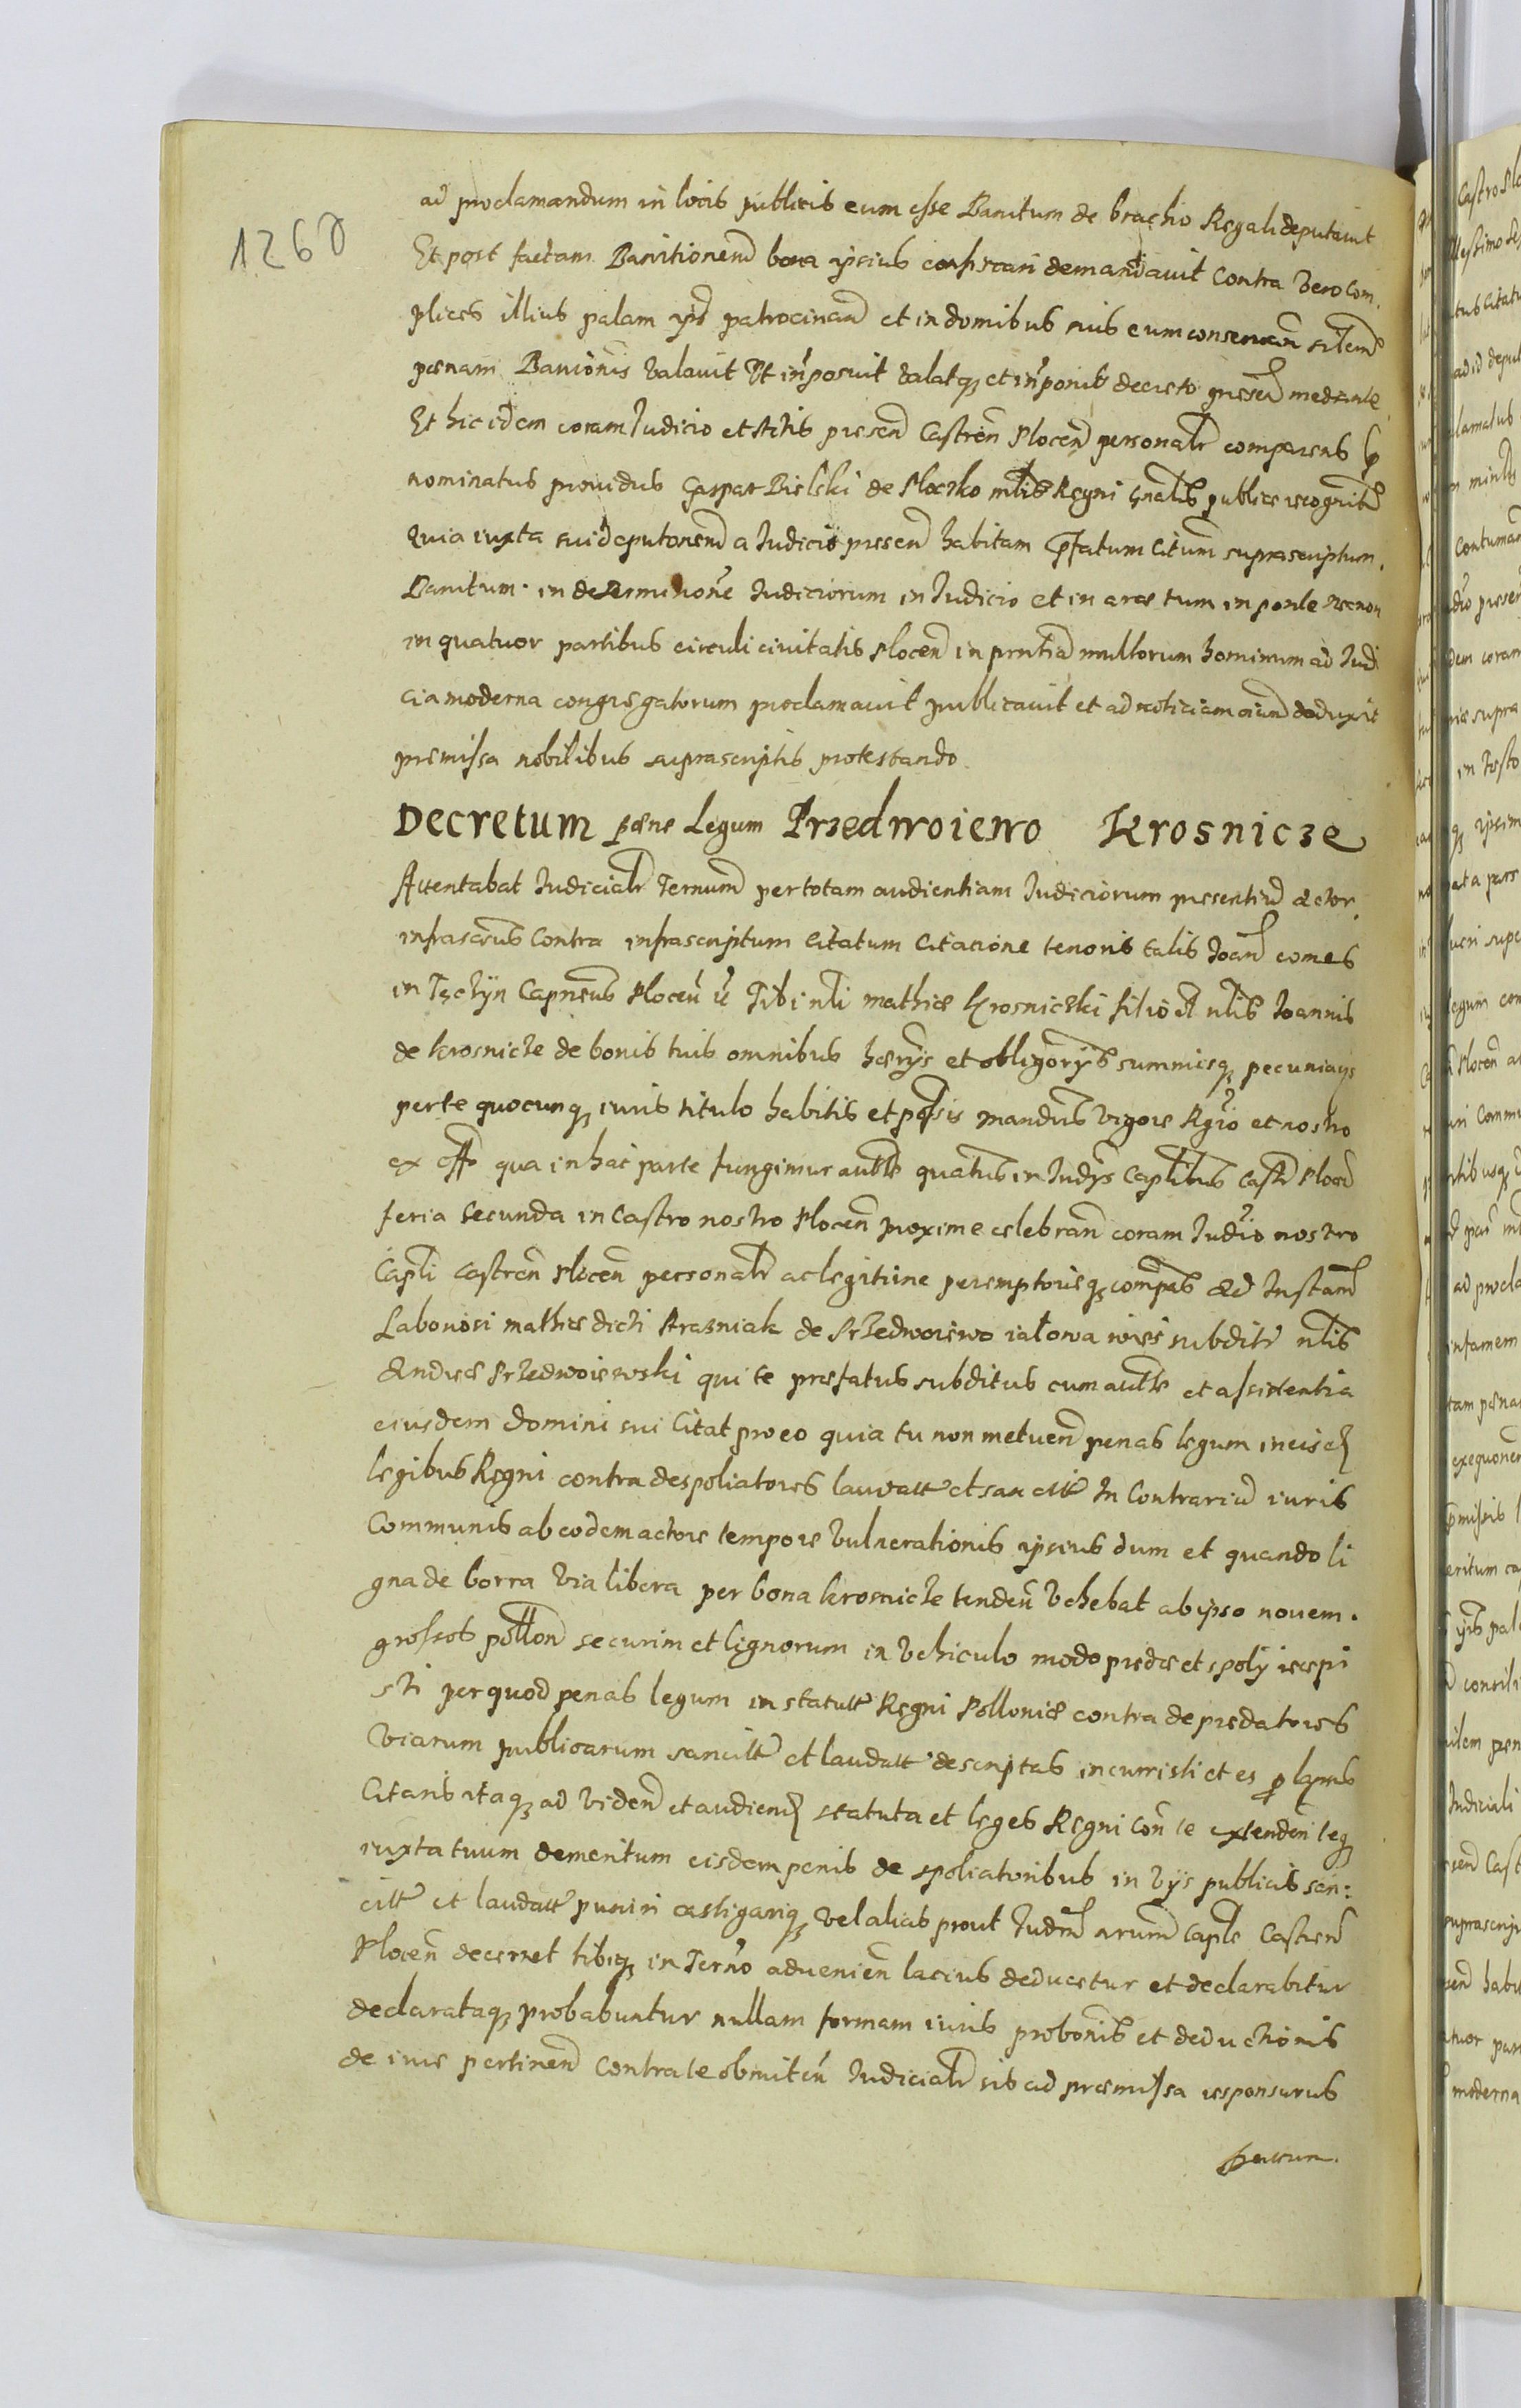 1260
ad proclamandum in locis publicis eum esse Banitum de brachio Regali deputavit
Et post factam Banitionem bona ipsius confiscari demandavit Contra vero com
plices illius palam ipsi patrocinan et in domibus suis eum conservan silem
pœnam Banionis valavit Ut inposuit valatq et inponit decreto presen mediante
Et hic idem coram Judicio et actis presen Castren Plocen personalr comparens
nominatus providus Gaspar Bielski de Płoczko mlis Regni gnalis publice recognit
Quia iuxta sui deputonem a Judicio presen habitam pfatum Citum suprascriptum
Banitum in determinone Judiciorum in Judicio et in arce tum in ponte necnon
in quatuor partibus circuli civitatis Plocen in prntia multorum hominum ad Judi
cia moderna congregatorum proclamavit publicavit et ad noticiam oium deduxit
premissa nobilibus suprascriptis protestando
Decretum pœne Legum Przedwoiewo Krosnicze
Attentabat Judicialr Ternum per totam audientiam Judiciorum presentium actor
infrascrus Contra infrascriptum Citatum Citacione tenoris talis Joan comes
in Tęczÿn Capneus Plocen Tibi nli mathiæ Krosniczki filio nlis Joannis
de Krosnicze de bonis tuis omnibus hærijs et obligorijs summisq pecuniarijs
per te quocunq iuris titulo habitis et possis mandus vigore Rgio et nostro
ex offo qua in hac parte fungimur autte quatus in Judijs Caplibus Castr Plocen
feria Secunda in Castro nostro Plocen proxime celebran coram Judio nostro
Capli Castren Plocen personalr ac legitime peremptorieq compeas Ad Instam
Laboriosi mathiæ dicti Strazniak de Przedwoiewo iałowa wies subditi nlis
Andreæ Przedwoiewski qui te præfatus subditus cum autte et assistentia
eiusdem Domini sui Citat pro eo quia tu non metuen penas legum in eisd
legibus Regni contra despoliatores laudatt et sancitt In Contrarium iuris
Communis ab eodem actore tempore Vulnerationis ipsius dum et quando li
gna de borra via libera per bona Krosnicze tenden Vehebat ab ipso novem
grossos pollon securim et lignorum in Vehiculo modo predæ et spolij recepi
sti per quod penas legum in statutt Regni Polloniæ contra depredatores
Viarum publicarum sancitt et laudatt descriptas incurristi et es
Citaris itaq ad Viden et audien statuta et leges Regni Con te extenden teq
iuxta tuum demeritum eisdem penis de spoliatoribus in vijs publicis san
citt et laudatt puniri castigariq vel alias prout Judm nrum Caple Castren
Plocen decernet tibiq in Terno advenien lacius deducetur et declarabitur
declarataq probabuntur nullam formam iuris probonis et deductionis
de iure pertinen Contra te obmitten Judicialr sis ad præmissa responsurus